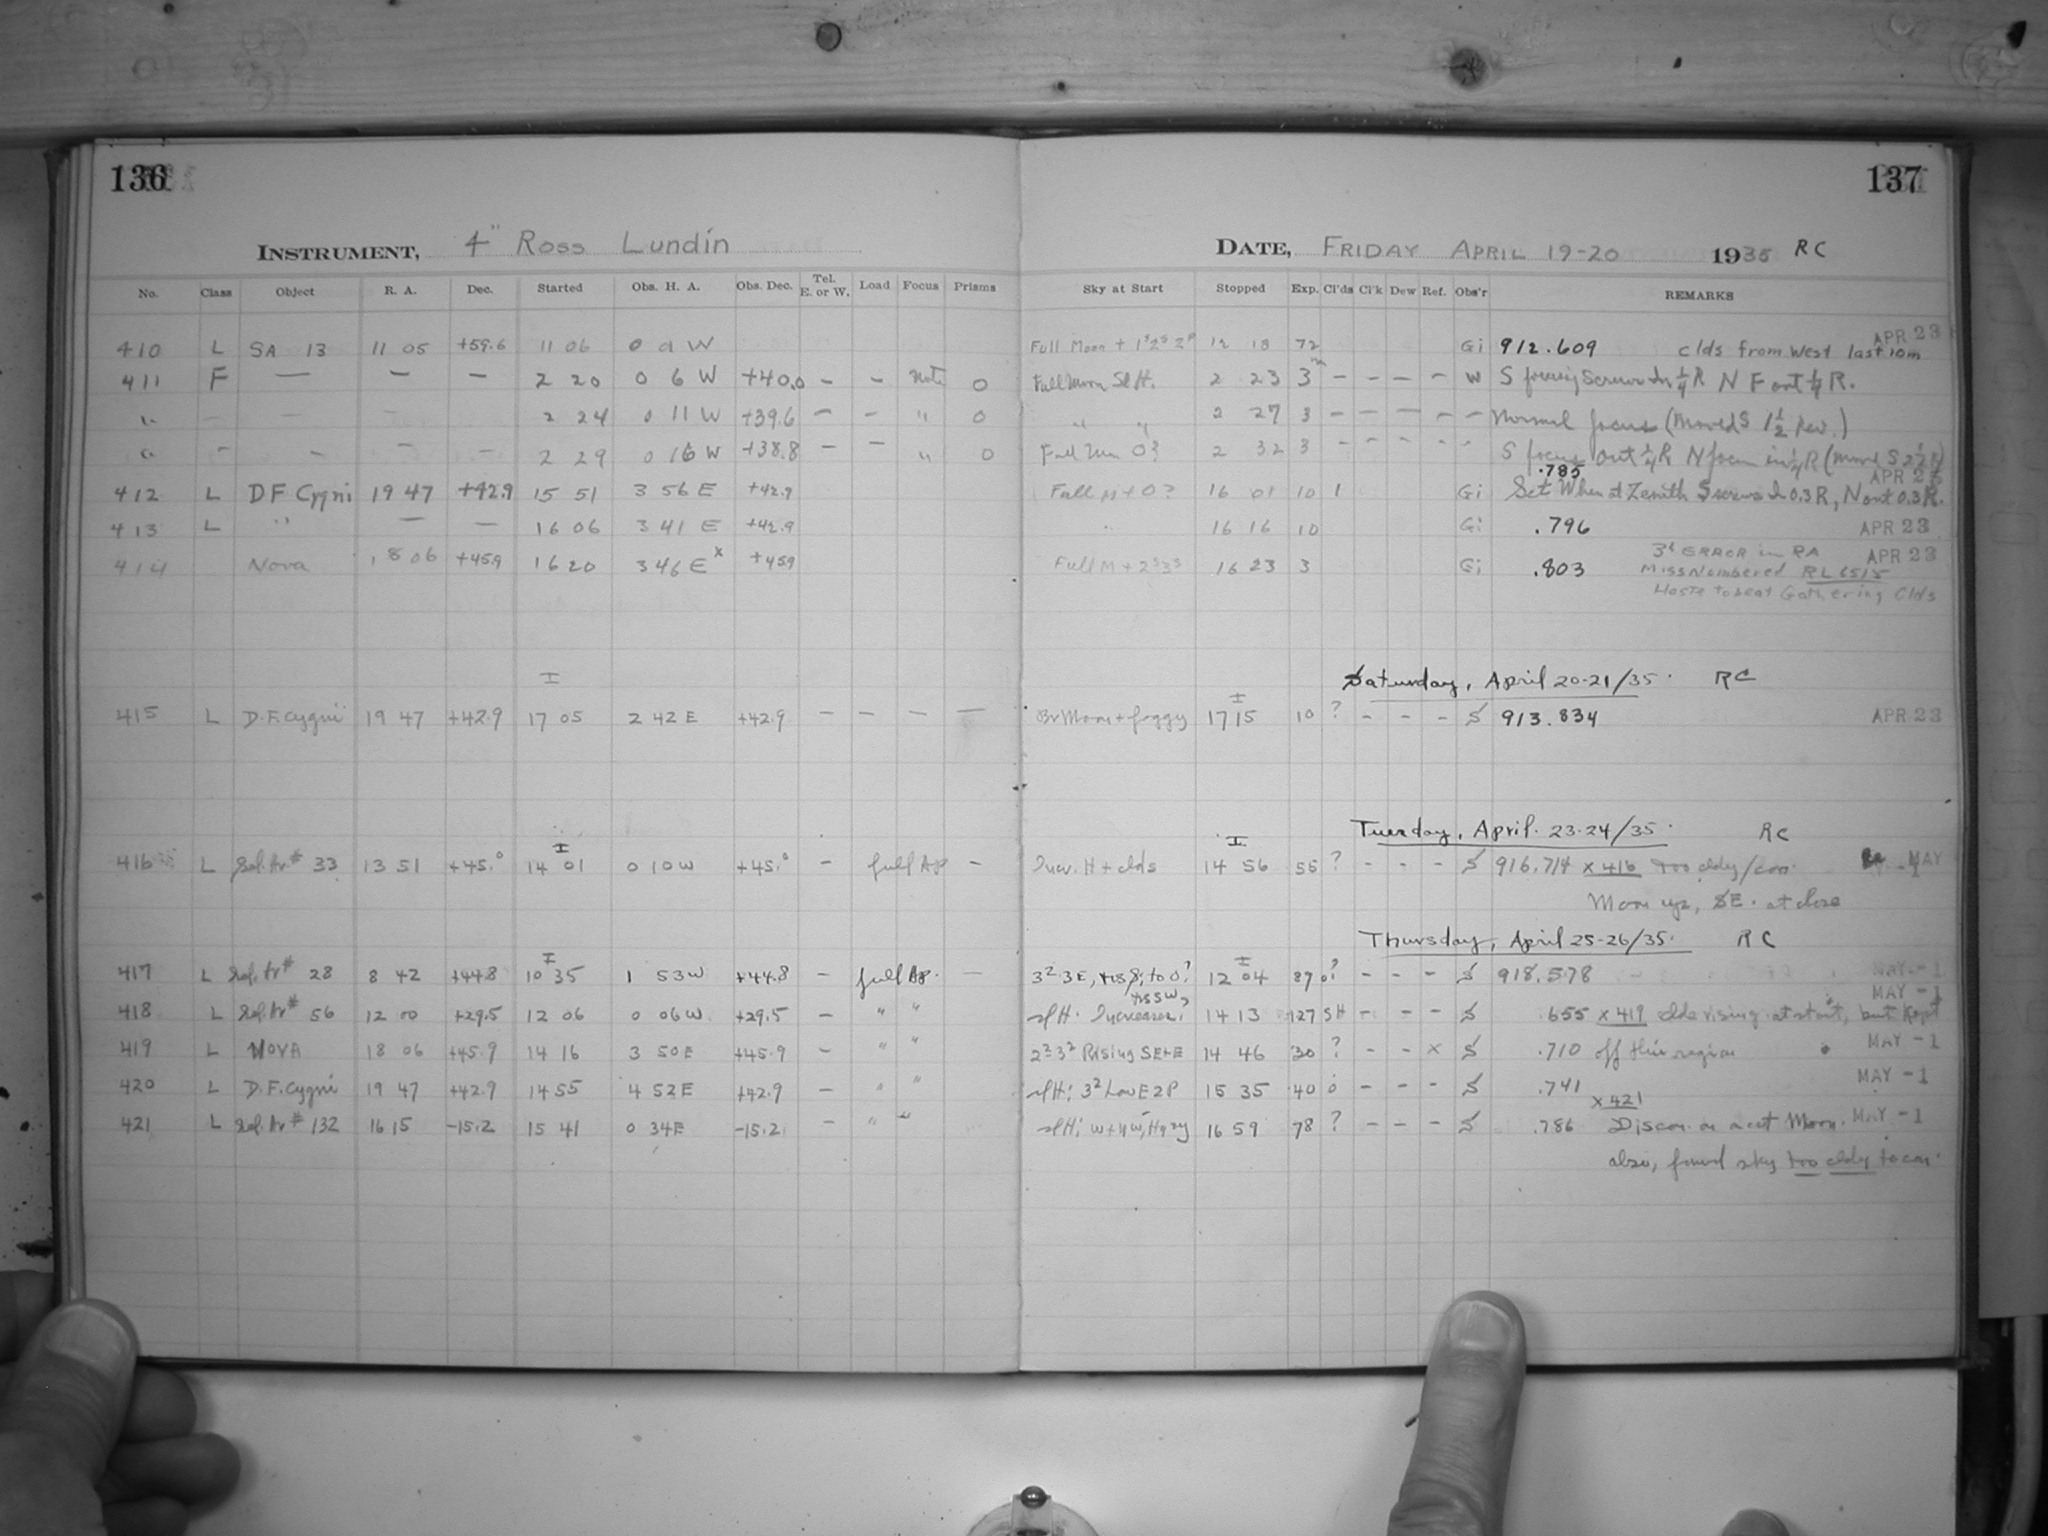 136
137
INSTRUMENT, 4" Ross Lundin
DATE, FRIDAY APRIL 19-20 1935 RC
No. Class Object R. A. Dec. Started Obs. H. A. Obs. Dec. Tel. E. or W. Load Focus Prisms Sky at Start Stopped Exp. Cl'ds Cl'k Dew Ref. Obs'r REMARKS
410 L SA 13 11 05 +59.6 11 06 0 01 W Full Moon + 12 18 72 Gi 912.609 clds from West last 10m APR 23
411 F — — — 2 20 0 6 W +40.0 – – Note 0 Full Moon Sl H. 2 23 3m – – – – W S focusing Screws In 1/4 R N F out 1/4 R.
" – – – 2 24 0 11 W +39.6 – – " 0 " " 2 27 3 – – – – – Normal focus (Moved S 1 1/2 Rev.)
" – – – – 2 29 0 16 W +38.8 – – " 0 Full Moon 0? 2 32 3 – – – – " S focus out 1/4 R N focus in 1/4 R
412 L DF Cygni 19 47 +42.9 15 51 3 56 E +42.9 Full M + 0? 16 01 10 1 Gi .785 Set When at Zenith S screws In 0.3 R, N out 0.3 R. APR 23
413 L " — — 16 06 3 41 E +42.9 " 16 16 10 Gi .796 APR 23
414 Nova 18 06 +45.9 16 20 3 46 E x +45.9 Full M + 16 23 3 Gi .803 ERROR in RA APR 23
MissNumbered RL 6515
Haste to beat Gathering Clds
Saturday, April 20-21/35. RC
415 L D.F. Cygni 19 47 +42.9 17 05 2 42 E +42.9 – – – – Br Moon + foggy 17 15 10 ? – – – S 913.834 APR 23
Tuesday, April. 23-24/35. RC
416 L Sel. Ar # 33 13 51 +45.° 14 01 0 10 W +45.° – full Ap – Incr. H + clds 14 56 55 ? – – – S 916.714 x 416 too cldy/con. MAY -1
Moon up, SE. at close
Thursday, April 25-26/35. RC
417 L Sel. Ar # 28 8 42 +44.8 10 35 1 53 W +44.8 – full Ap. – 12 04 89 0? – – – S 918.578 MAY -1
418 L Sel. Ar # 56 12 00 +29.5 12 06 0 06 W +29.5 – " " sl H. Increases? 14 13 127 SH – – – S .655 x 419 clds rising at start, but kept MAY -1
419 L NOVA 18 06 +45.9 14 16 3 50 E +45.9 – " " Rising SE+E 14 46 30 ? – – x S .710 off this region MAY -1
420 L D.F. Cygni 19 47 +42.9 14 55 4 52 E +42.9 – " " sl H; 3² Low E 2P 15 35 40 0 – – – S .741 MAY -1
421 L Sel. Ar # 132 16 15 -15.2 15 41 0 34 E -15.2 – " " 16 59 78 ? – – – S .786 x 421 Discon. on acct Moon. MAY -1
also, found sky too cldy to con.